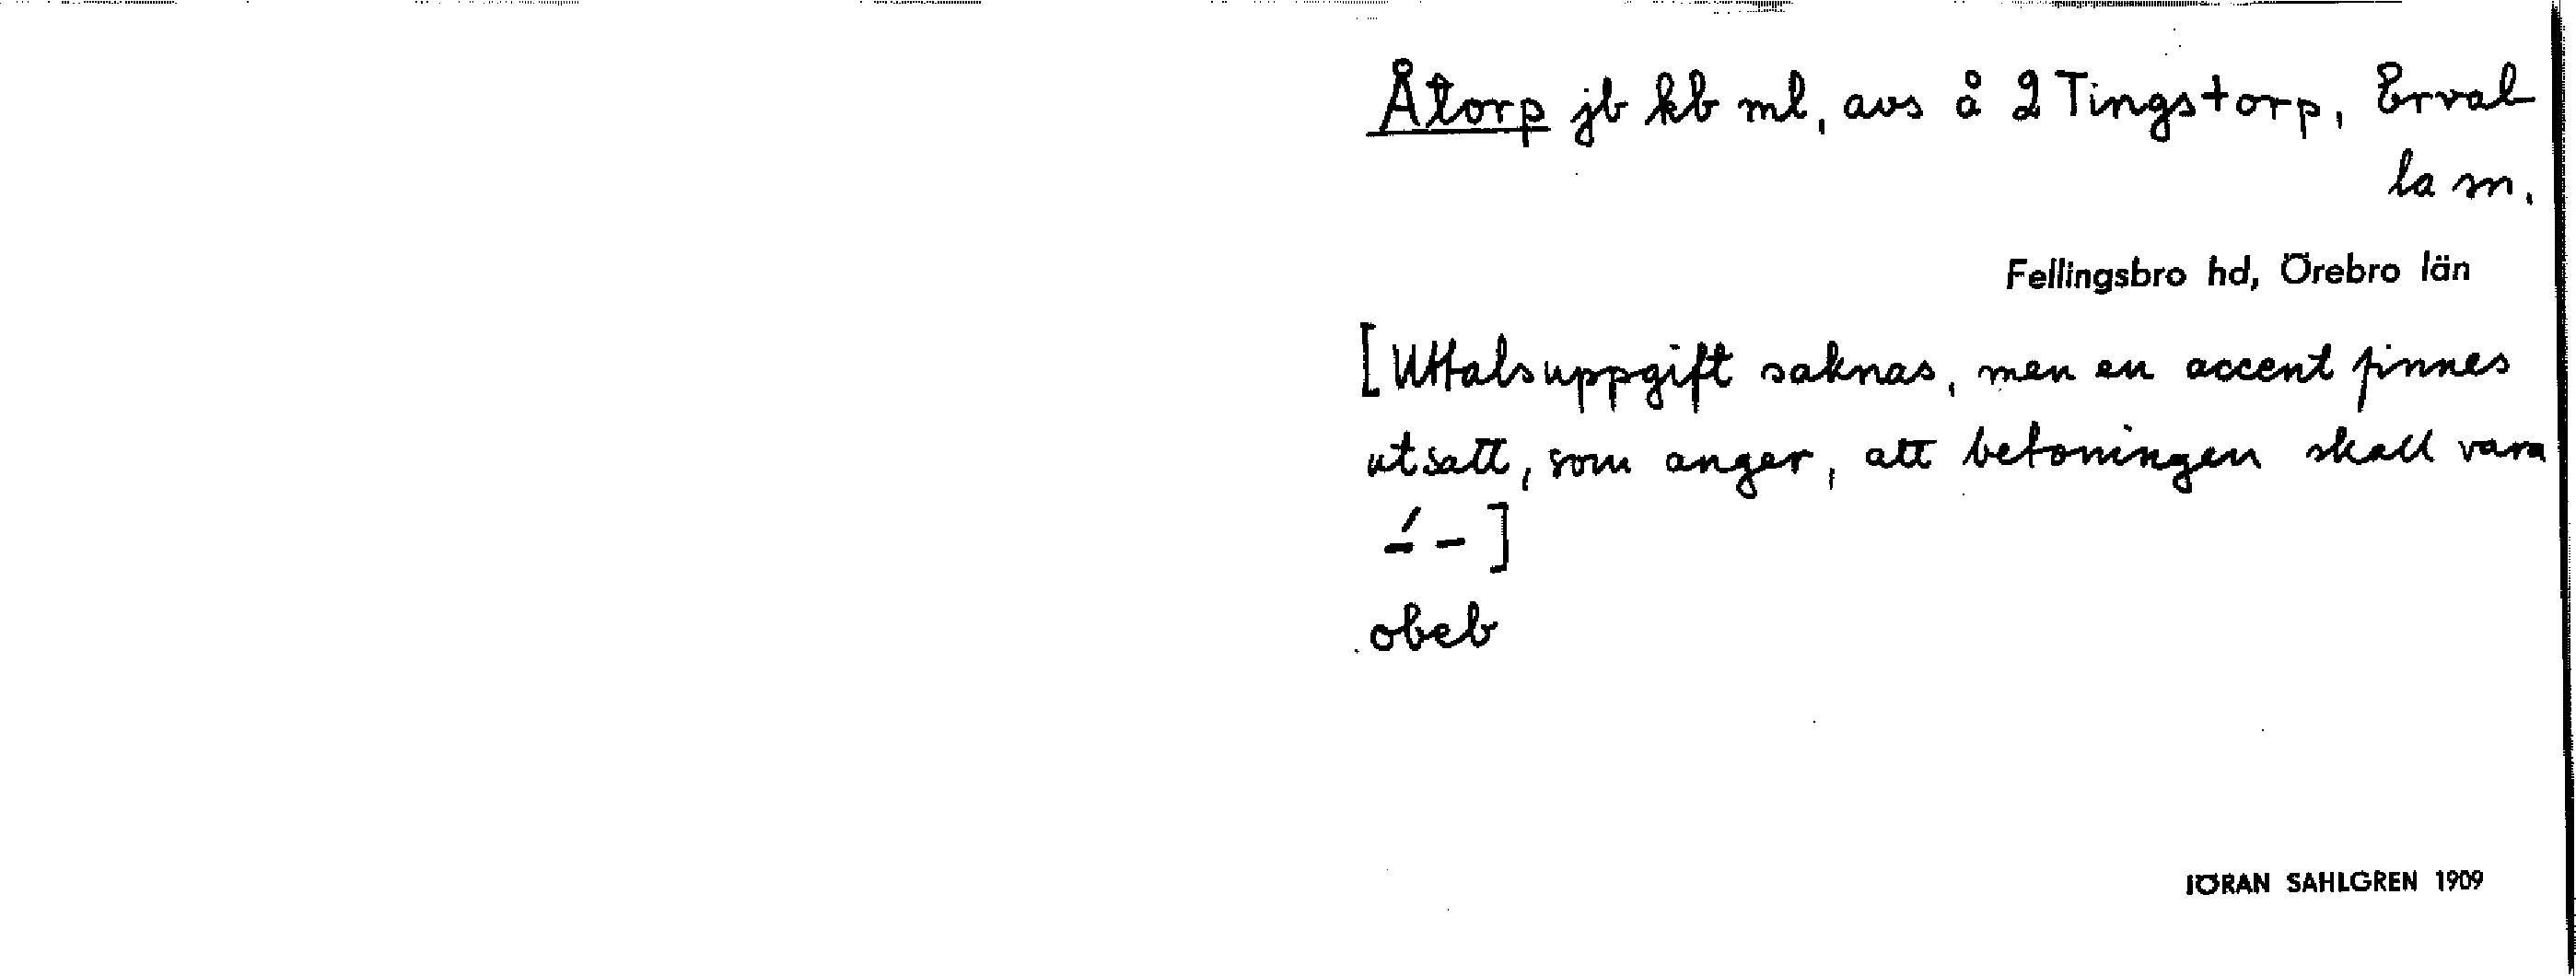 Åtorp jb kb ml, avs å 2 Tingstorp, Erval
la sn.
Fellingsbro hd, Örebro län
[Uttalsuppgift saknas, men en accent finnes
utsatt, som anger, att betoningen skall vara
–́ –]
obeb
JÖRAN SAHLGREN 1909